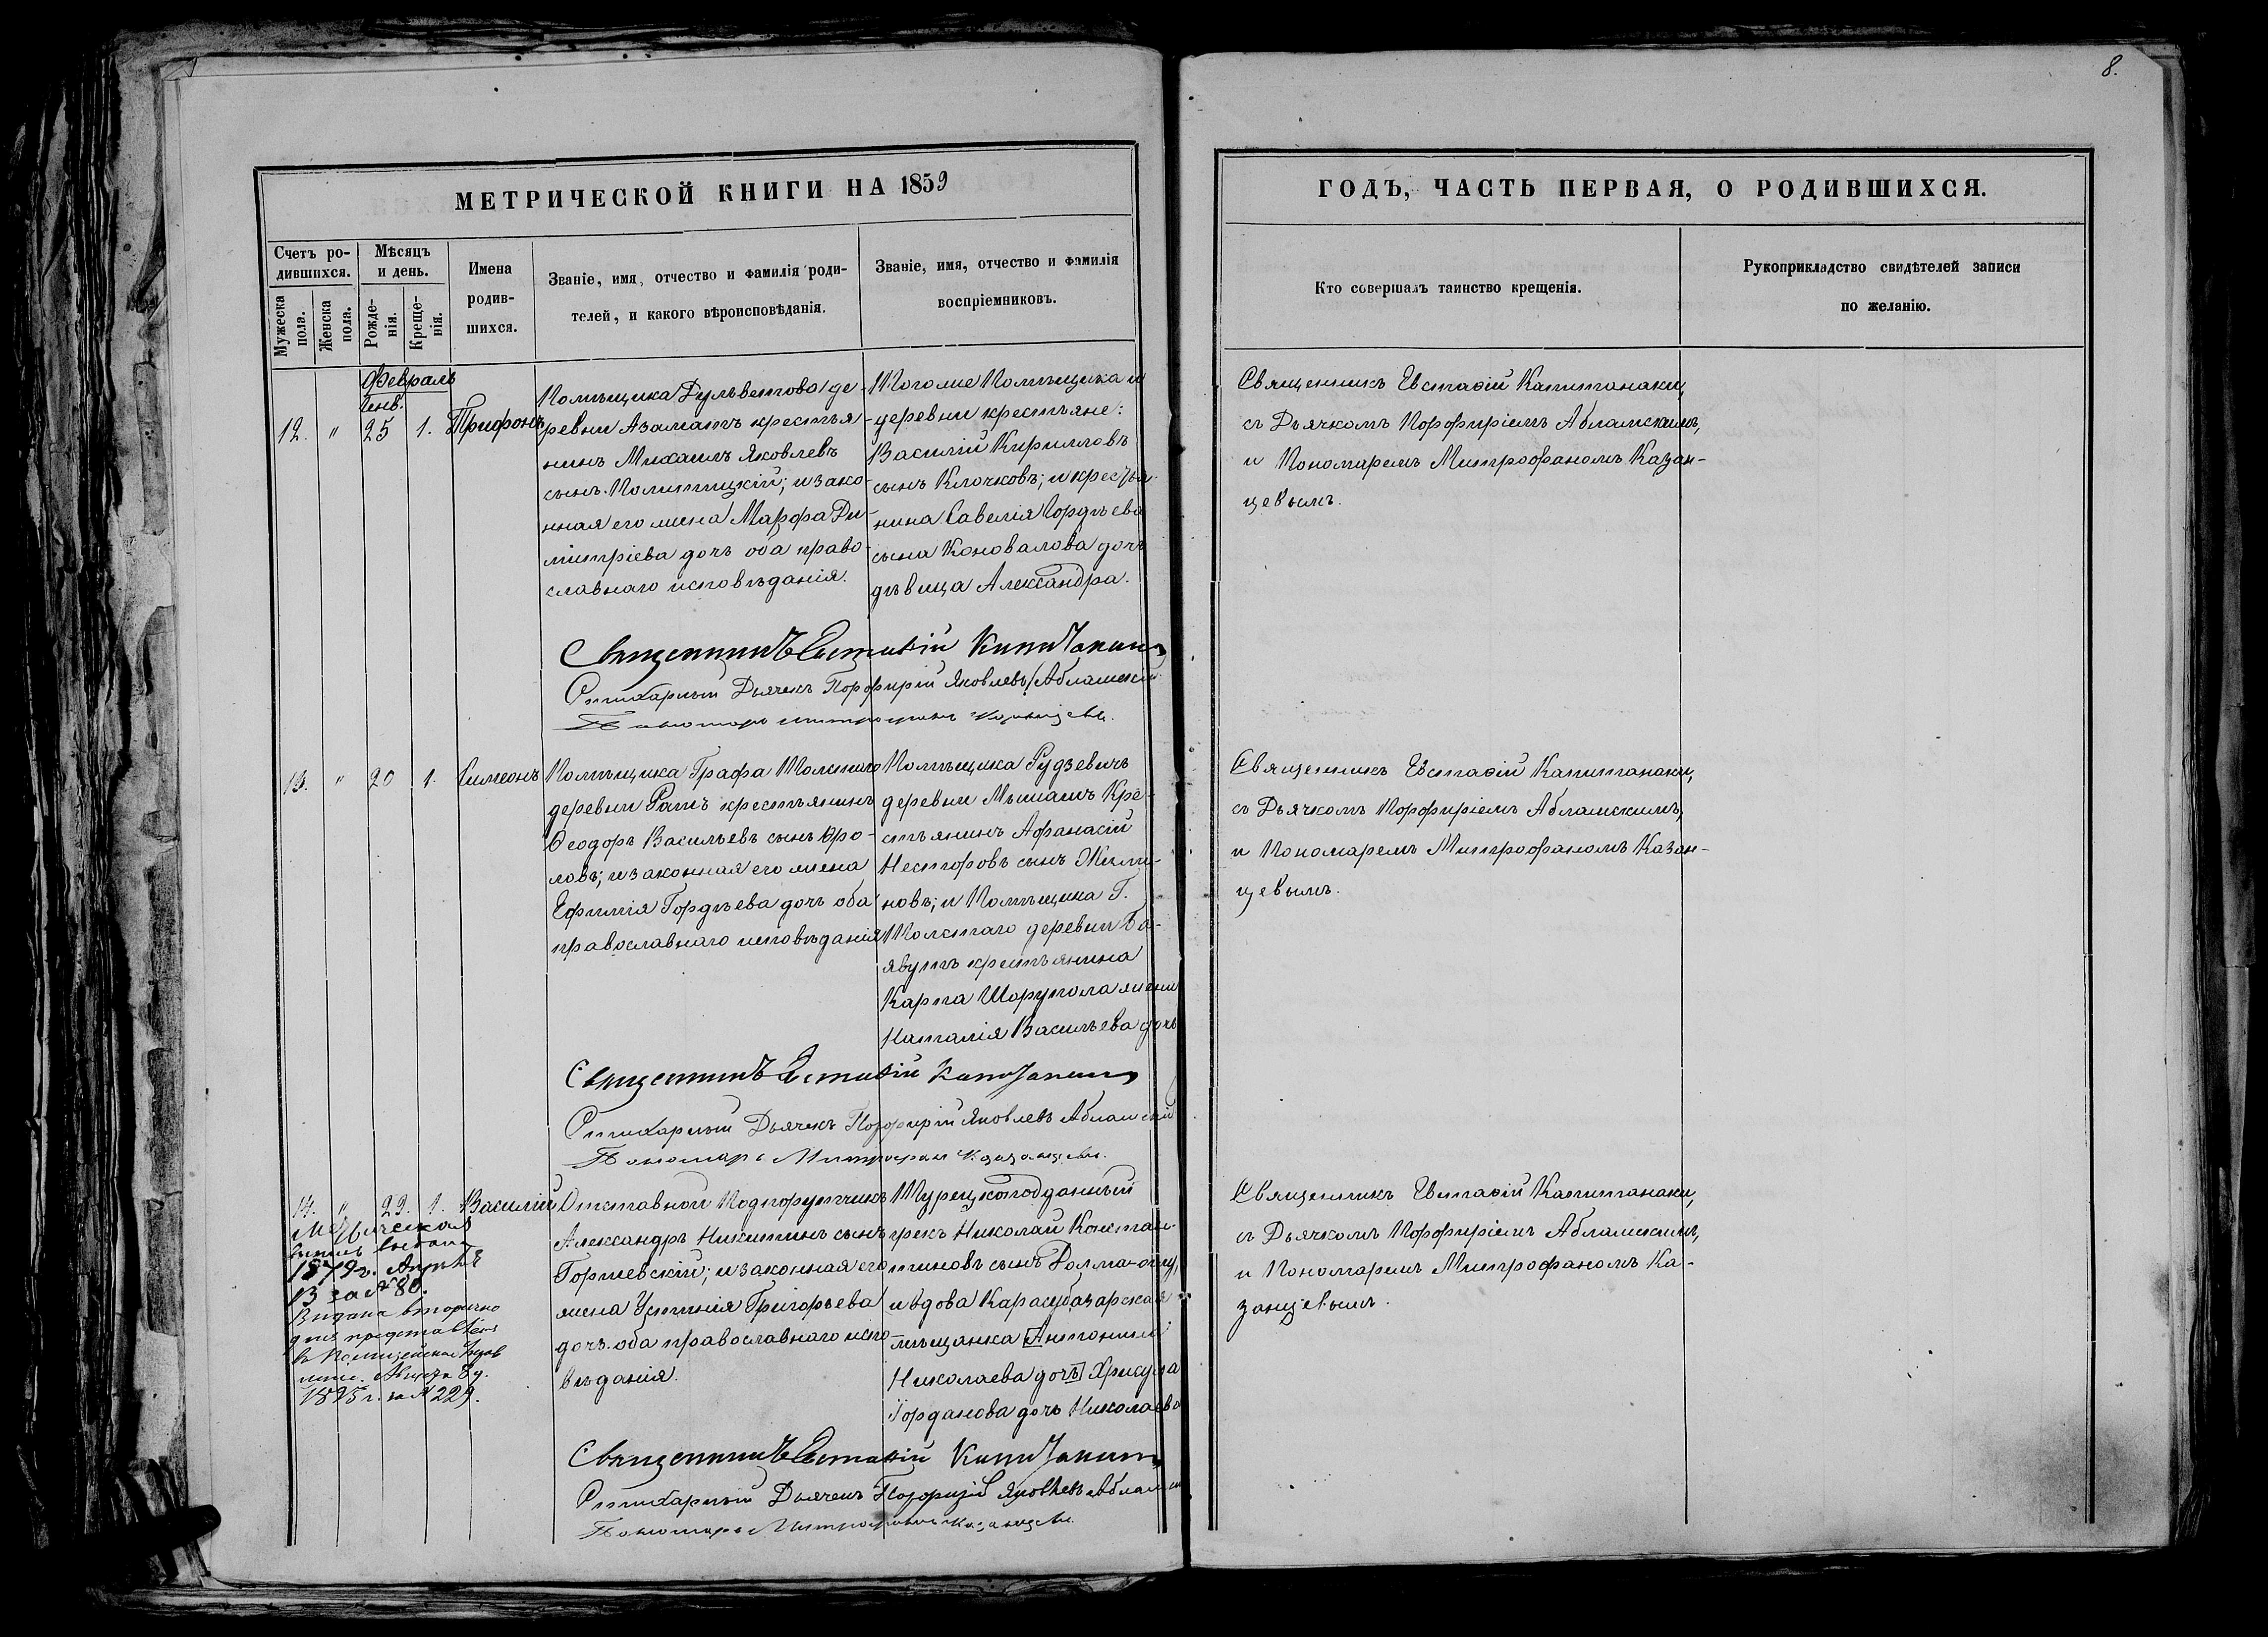 8.
МЕТРИЧЕСКОЙ КНИГИ НА 1859
ГОДЪ, ЧАСТЬ ПЕРВАЯ, О РОДИВШИХСЯ.
Счетъ ро-
дившихся.
Мужеска
пола.
Женска
пола.
Мѣсяцъ
и день.
Рожде-
нія.
Креще-
нія.
Имена
родив-
шихся.
Званіе, имя, отчество и фамилія роди-
телей, и какого вѣроисповѣданія.
Званіе, имя, отчество и фамилія
воспріемниковъ.
Кто совершалъ таинство крещенія.
Рукоприкладство свидѣтелей записи
по желанію.
Февраль
Генв.
12. " 25 1. Трифонъ
Помѣщика де-
ревни Азаматъ крестья-
нинъ Михаилъ Яковлевъ
сынъ ; и зако-
нная его жена Марфа Ди-
митріева дочь оба право-
славнаго исповѣданія.
Тогоже Помѣщика и
деревни крестьяне:
Василій Кирилловъ
сынъ Клочковъ; и крестья-
нина Савелія Гордѣева
сына Коновалова дочь
дѣвица Александра.
Священникъ Евстафій Капитанаки,
съ Дьячкомъ Порфиріемъ Абламскимъ,
и Пономаремъ Митрофаномъ Казан-
цевымъ.
Священникъ Евстафій Капитанаки
Стихарный Дьячекъ Порфирій Яковлевъ Абламскій
Пономарь Митрофанъ Казанцевъ.
13. " 20 1. Симеонъ
Помѣщика Графа Толстого
деревни крестьянинъ
Ѳеодоръ Васильевъ сынъ Фро-
ловъ; и законная его жена
Ефимія Гордѣева дочь оба
православнаго исповѣданія
Помѣщика Рудзевичъ
деревни Кре-
стьянинъ Афанасій
Несторовъ сынъ
новъ; и Помѣщика Г.
Толстаго деревни Ба-
явутъ крестьянина
Карпа жена
Наталія Васильева дочь
Священникъ Евстафій Капитанаки,
съ Дьячкомъ Порфиріемъ Абламскимъ,
и Пономаремъ Митрофаномъ Казан-
цевымъ.
Священникъ Евстафій Капитанаки
Стихарный Дьячекъ Порфирій Яковлевъ Абламскій
Пономарь Митрофанъ Казанцевъ.
14. " 29. 1. Василій
Метрическая
выпись выдана
1879 г. Апрѣля
13 за № 80.
Выдана вторично
для представленія
въ
Августа 8 д.
1895 г. за № 229.
Отставной Подпоручикъ
Александръ Никитинъ сынъ
Горшевскій; и законная его
жена Устинія Григорьева
дочь оба православнаго испо-
вѣданія.
Турецкоподданный
грекъ Николай Констан-
тиновъ сынъ
и вдова Карасубазарская
мѣщанка Антонина
Николаева дочь Хрисула
Іорданова дочь Николаева
Священникъ Евстафій Капитанаки,
съ Дьячкомъ Порфиріемъ Абламскимъ,
и Пономаремъ Митрофаномъ Ка-
занцевымъ.
Священникъ Евстафій Капитанаки
Стихарный Дьячекъ Порфирій Яковлевъ Абламскій
Пономарь Митрофанъ Казанцевъ.